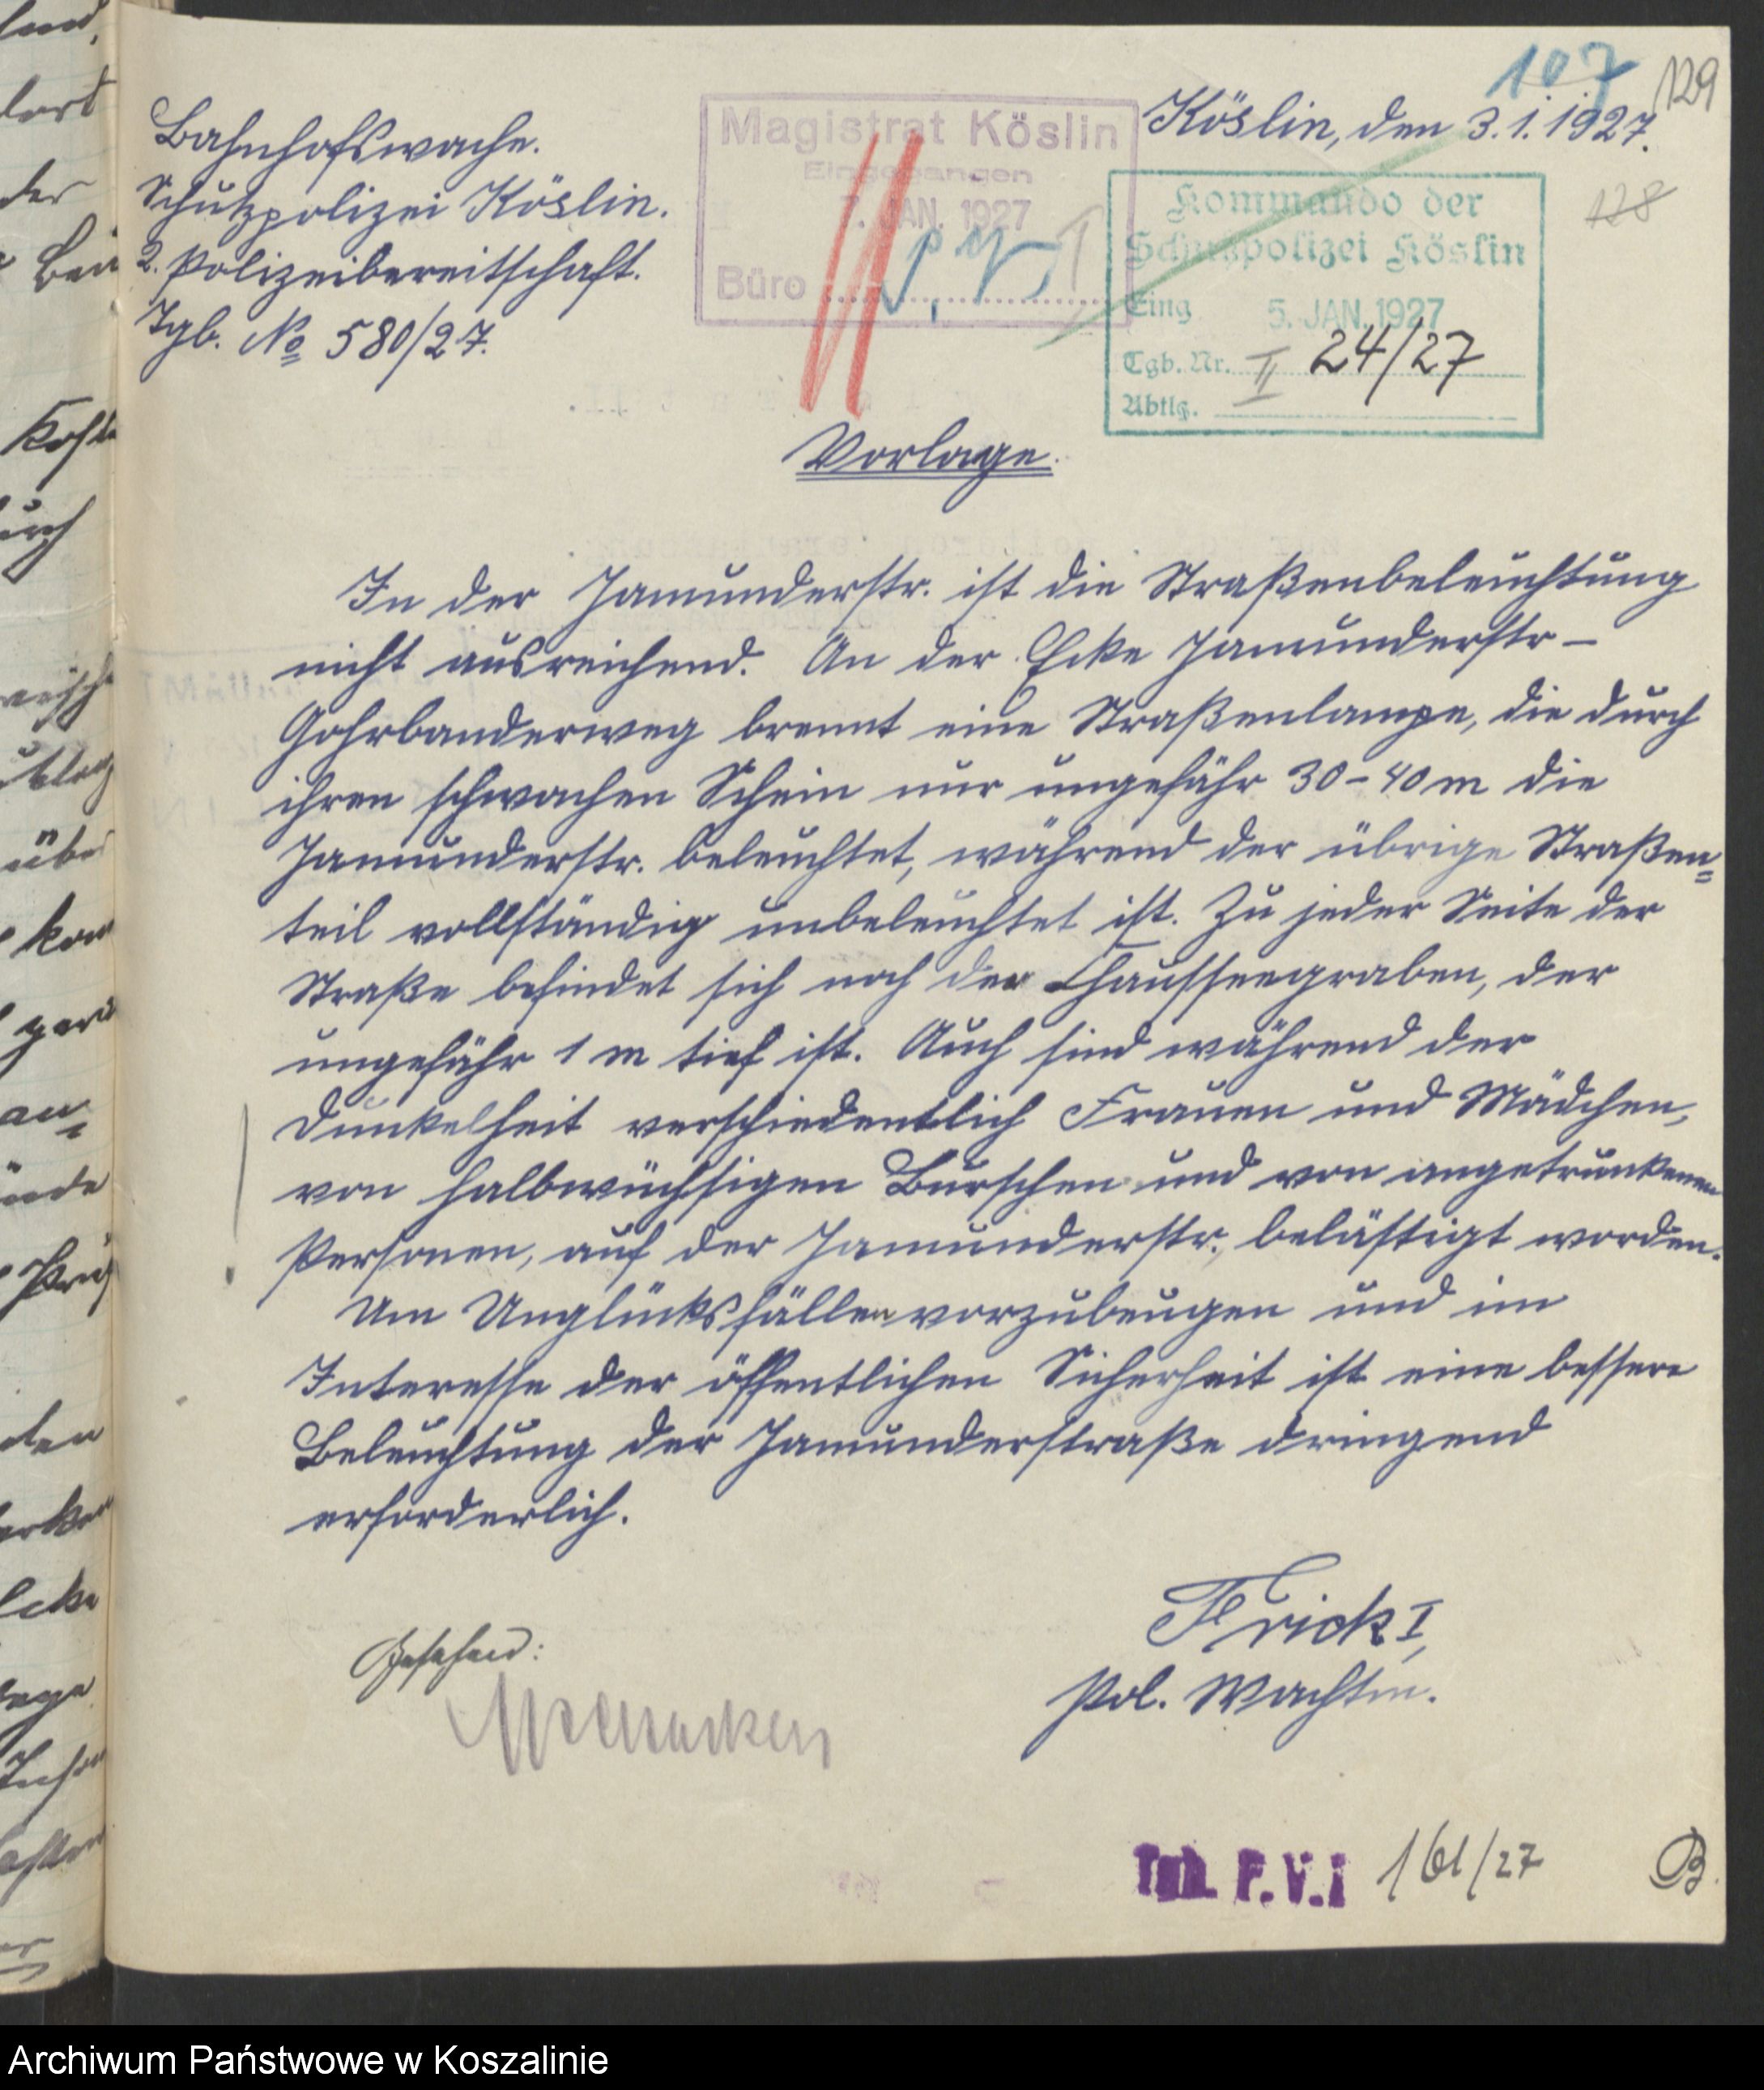 107
129
Köslin, den 3.1.1927.
128
Bahnhofswache.
Schutzpolizei Köslin.
2. Polizeibereitschaft.
Tgb. No 580/27.
Magistrat Köslin
Eingegangen
7. JAN. 1927
Büro
Kommando der
Schutzpolizei Köslin
Eing 5. JAN. 1927
Tgb. Nr. II 24/27
Abtlg.
Vorlage.
In der Jamunderstr. ist die Straßenbeleuchtung
nicht ausreichend. An der Ecke Jamunderstr –
Gohrbanderweg brennt eine Straßenlampe, die durch
ihren schwachen Schein nur ungefähr 30–40 m die
Jamunderstr. beleuchtet, während der übrige Straßen=
teil vollständig unbeleuchtet ist. Zu jeder Seite der
Straße befindet sich noch der Chausseegraben, der
ungefähr 1 m tief ist. Auch sind während der
Dunkelheit verschiedentlich Frauen und Mädchen,
von halbwüchsigen Burschen und von angetrunkenen
Personen, auf der Jamunderstr. belästigt worden.
Um Unglücksfällen vorzubeugen und im
Interesse der öffentlichen Sicherheit ist eine bessere
Beleuchtung der Jamunderstraße dringend
erforderlich.
Frick I,
Pol. Wachtm.
Gesehen:
Tgb. P.V.I 161/27
B.
Archiwum Państwowe w Koszalinie